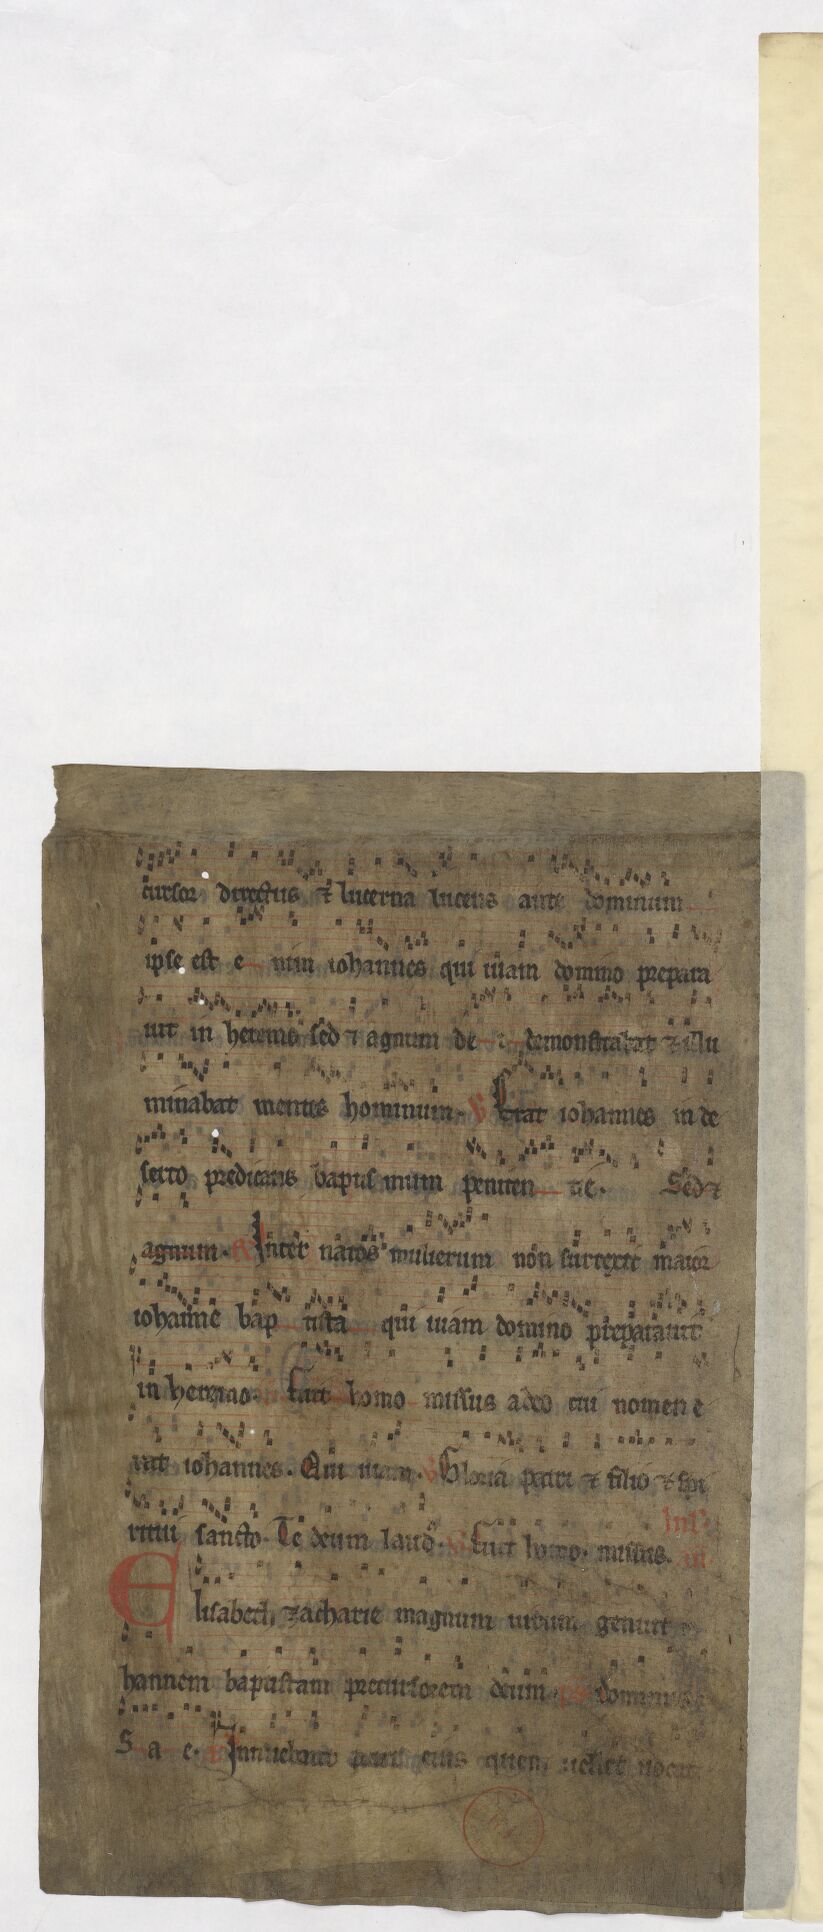 cursor directus & lucerna lucens ante dominum
ipse est e nim iohannes qui uiam domino prepara
uit in heremo sed & agnum de i demonstrabat & illu
minabat mentes hominum. V Erat iohannes in de
serto predicans baptis mum peniten tie. Sed &
agnum. R Inter natos mulierum non surrexit maior
iohanne bap tista qui uiam domino preparauit
in heremo fuit homo missus a deo cui nomen e
rat iohannes. Qui uiam. V Gloria patri & filio & spi
ritui sancto. Te deum laud. V Fuit homo. missus. In l.
Elisabeth zacharie magnum uirum genuit
hannem baptistam precursorem domini. ps dominus
S a e. Innuebant patri eius quem uellet uocari